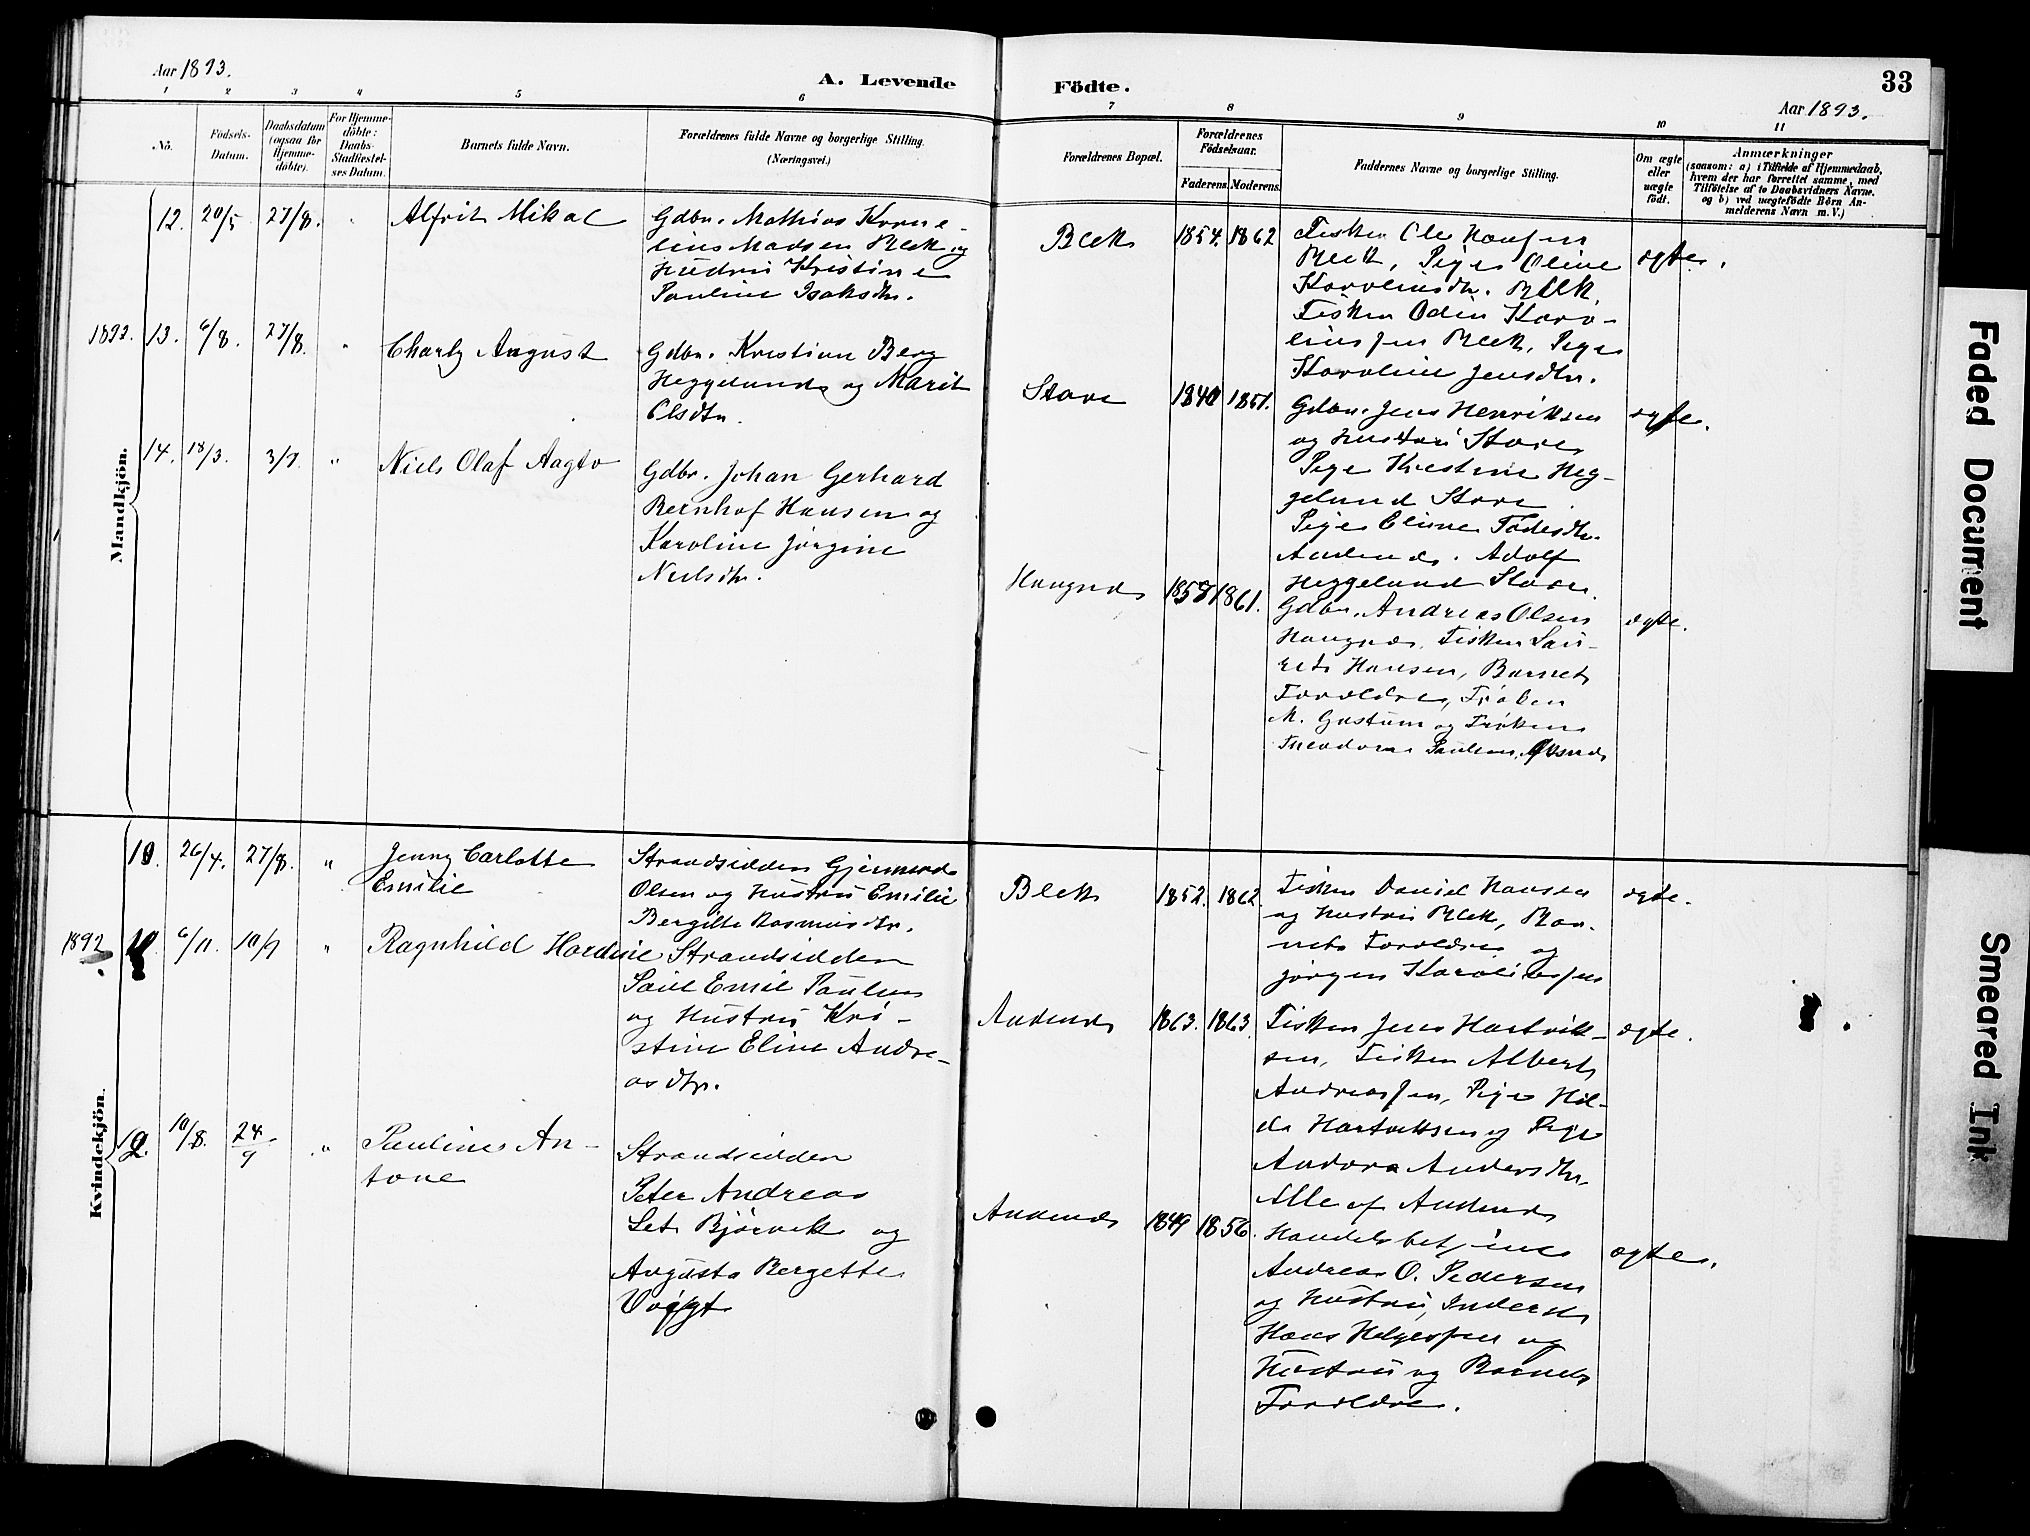 Aar 1893.
A. Levende
Födte.
33
Aar 1893.
1 2 3 4 5 6
7 8 9 10 11
No.
Födsels-
Datum.
Daabsdatum
(ogsaa for
Hjemme-
döbte).
For Hjemme-
döbte:
Daabs-
Stadfæstel-
ses Datum.
Barnets fulde Navn.
Forældrenes fulde Navne og borgerlige Stilling.
(Næringsvei.)
Forældrenes Bopæl.
Forældrenes
Födselsaar.
Faderens. Moderens.
Faddernes Navne og borgerlige Stilling.
Om ægte
eller
uægte
födt.
Anmærkninger
(saasom: a) i Tilfælde af Hjemmedaab,
hvem der har forrettet samme, med
Tilföielse af to Daabsvidners Navne.
og b) ved uægtefödte Börn An-
melderens Navn m. V.)
Mandkjön.
12. 20/5 27/8.
Alfrit Mikal
Gdbr. Mathias Korne-
lius Madsen Blek og
Hustru Kristine
Pauline Isaksdtr.
Blek
1854. 1862
Fisker Ole Hansen
Blek, Pige Oline
Karolinsdtr. Blek,
Fisker Odin Karo-
liussen Blek, Pige
Karoline Jensdtr.
ægte.
1892. 13. 6/8. 27/8. "
Charly August
Gdbr. Kristian Berg
Heggelund og Marit
Olsdtr.
Stave
1840 1851.
Gdbr. Jens Henriksen
og Hustru Stave
Pige Kristine Heg-
gelund Stave
Pige Eline
Andenes. Adolf
Heggelund Stave.
ægte.
14. 18/3. 3/7. "
Niels Olaf Aagto
Gdbr. Johan Gerhard
Bernhof Hansen og
Karoline Jørgine
Nielsdtr.
Haugnes
1858 1861.
Gdbr. Andreas Olsen
Haugnes, Fisker Lau-
rits Hansen, Barnets
Forældre, Frøken
M. Gustum og Frøken
Theodora Paulsen,
ægte.
Kvindekjön.
10. 26/4. 27/8. "
Jenny Carlotte
Emilie
Strandsidder Gjermund
Olsen og Hustru Emilie
Bergitte Rasmusdtr.
Blek
1852. 1862.
Fisker Daniel Hansen
og Hustru Blek, Bar-
nets Forældre og
Jørgen Karoliussen
ægte.
1892 6/11. 10/9 "
Ragnhild Hardine
Strandsidder
Paul Emil Paulsen
og Hustru Kri-
stine Eline Andre-
asdtr.
Andenes
1863. 1863.
Fisker Jens Hartvik-
sen, Fisker Albert
Andreassen, Pige Hil-
da Hartviksen og Pige
Andora Andersdtr.
Alle af Andenes
ægte.
12. 10/8. 24/9 "
Pauline An-
tone
Strandsidder
Peter Andreas
Let Bjørvik og
Augusta Bergette
Voigt
Andenes
1849 1856.
Handelsbetjent
Andreas O. Pedersen
og Hustru, Inderst
Hans Helgessen og
Hustru og Barnets
Forældre.
ægte.
Faded Document
Smeared Ink